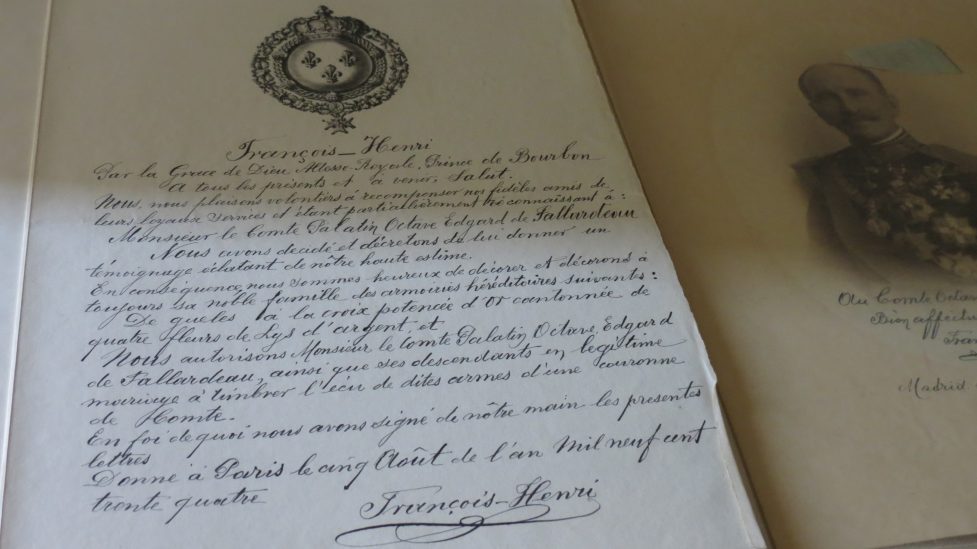 François-Henri
Par la Grace de Dieu Altesse Royale, Prince de Bourbon
A tous les présents et à venir, Salut.
Nous, nous plaisons volontiers à récompenser nos fidèles amis de
leurs loyaux services et étant particulièrement reconnaissant à:
Monsieur le Comte Palatin Octave Edgard de Fallardeau
Nous avons décidé et décretons de lui donner un
témoignage éclatant de nôtre haute estime.
En conséquence nous sommes heureux de décorer et décorons à
toujours sa noble famille des armoiries héréditaires suivants:
De gueles à la croix potencée d'or cantonnée de
quatre fleurs de Lys d'argent et
Nous autorisons Monsieur le Comte Palatin Octave, Edgard
de Fallardeau, ainsi que ses descendants en légitime
mariage à timbrer l'écu de dites armes d'une couronne
de Comte.
En foi de quoi nous avons signé de nôtre main les présentes
lettres
Donné à Paris le cinq Août de l'an Mil neuf cent
trente quatre
François-Henri
Au Comte Octav
Bien affectu
Fran
Madrid.